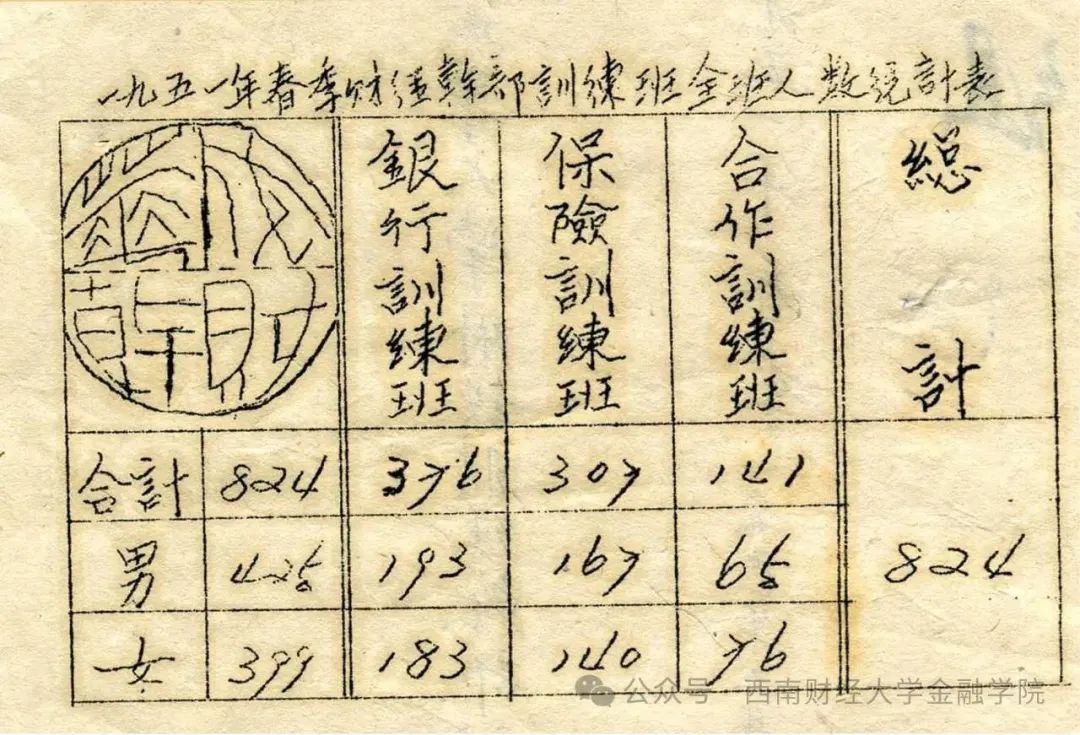 一九五一年春季财经幹部訓練班全班人数統計表
銀行訓練班 保險訓練班 合作訓練班 總計
合計 824 376 307 141
男 425 193 167 65 824
女 399 183 140 76
公众号·西南财经大学金融学院